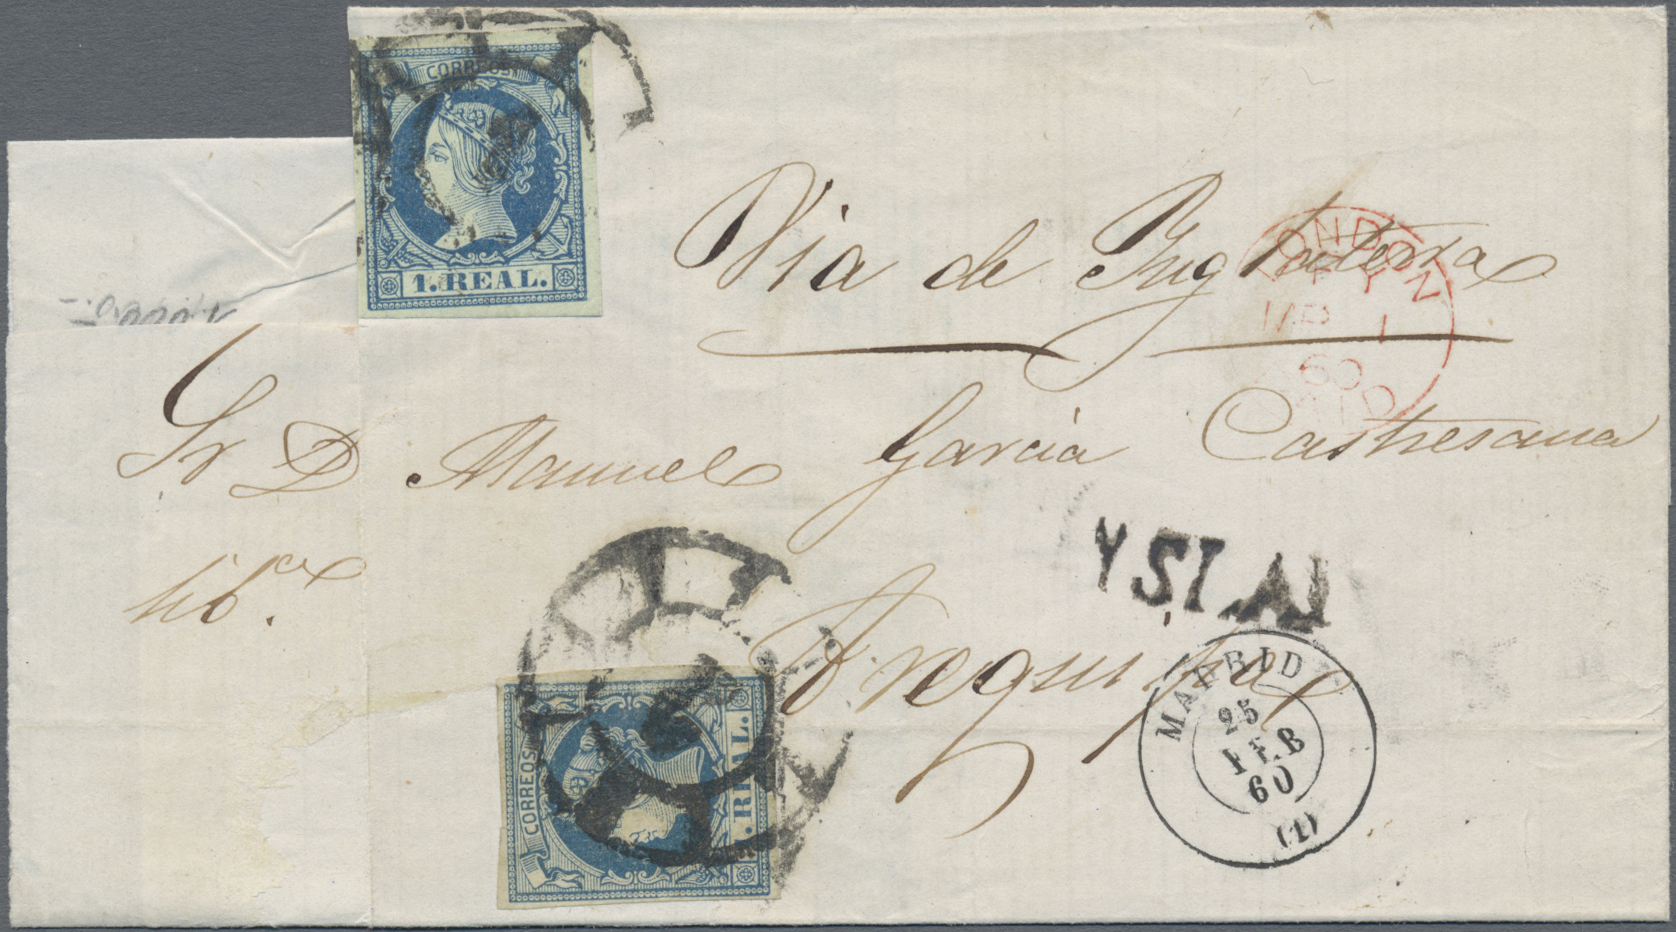 CORREOS
1. REAL.
Via de Inglaterra
LONDON
60
PAID
Sr D Manuel Garcia Castresana
Arequipa
MADRID
25
FEB
60
(1)
CORREOS
. REAL.